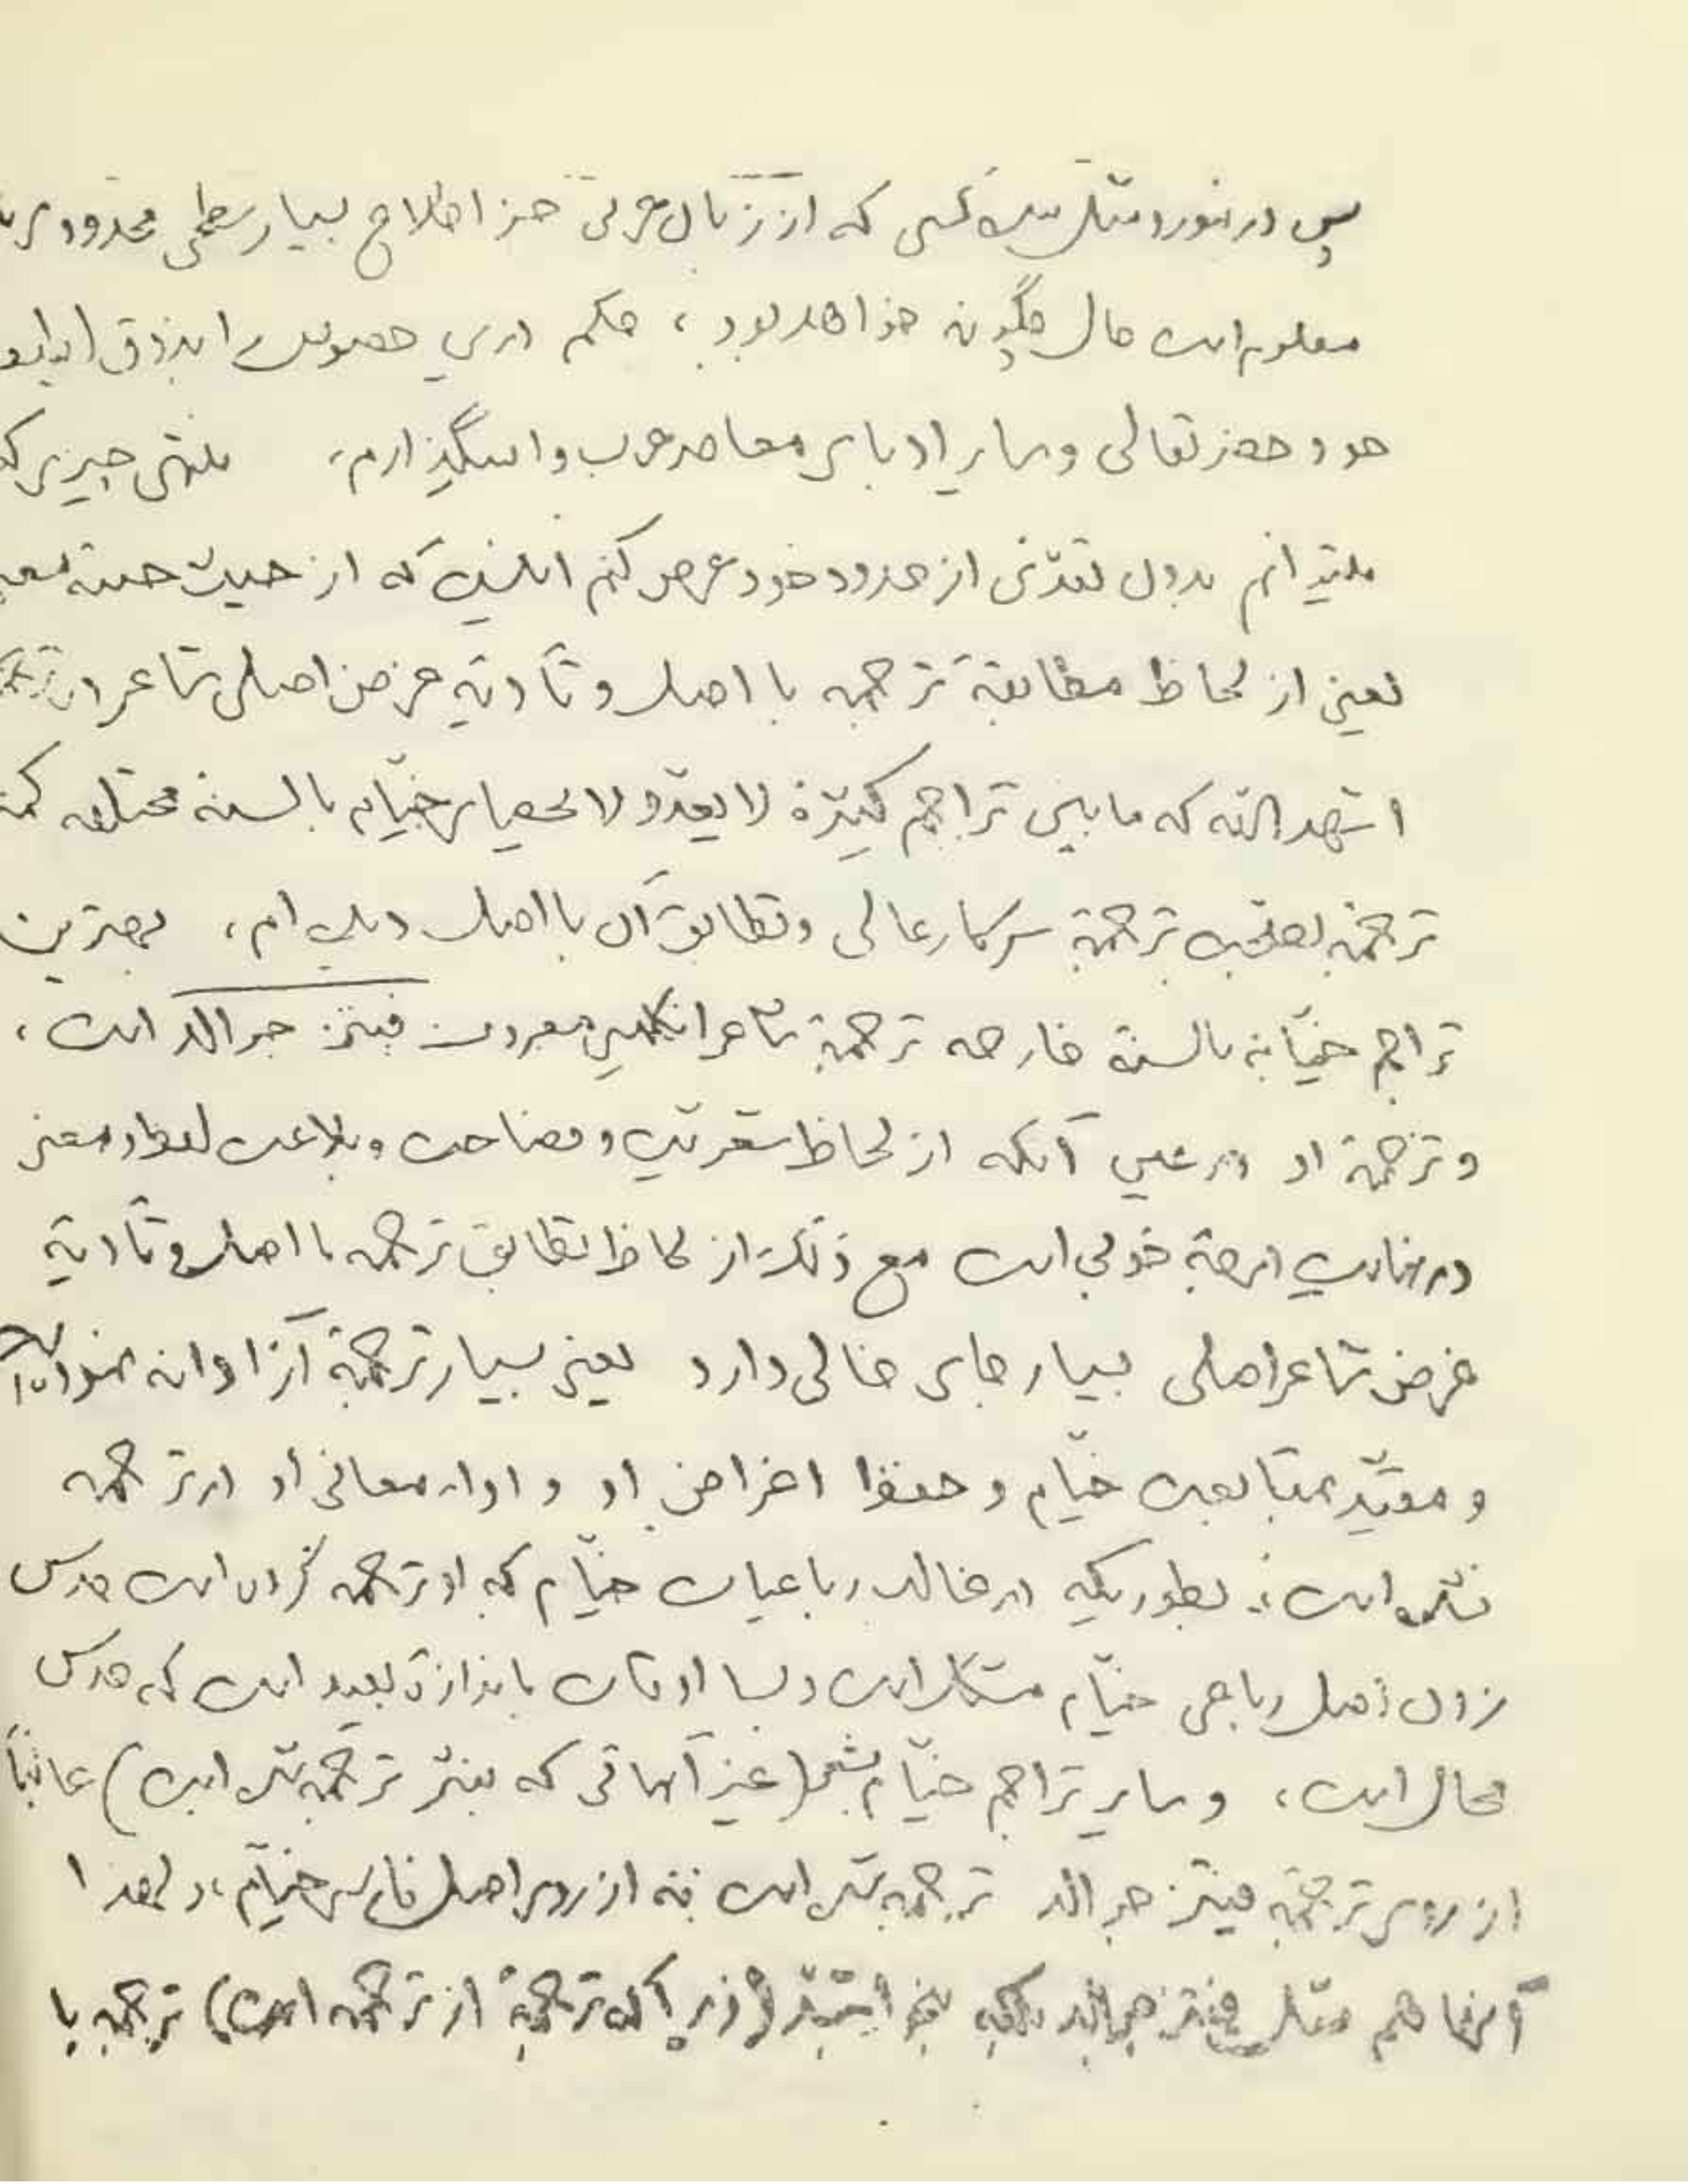 پس در اینصورت مثل بنده کسی که از زبان عربی جز اطلاع بسیار سطحی محدودی
معلوم است حال چگونه خواهد بود، حکم درین خصوص را بذوق
خود حضرتعالی و سایر ادبای معاصر عرب وامیگذارم، منتهی چیزی که
میتوانم بدون تعدّی از حدود خود عرض کنم اینست که از حیث جنبه
یعنی از لحاظ مطابقهٔ ترجمه با اصل و تأدیهٔ غرض اصلی شاعر در
اشهد بالله که مابین تراجم کثیرهٔ لا یعدّ و لا یحصای خیّام بالسنهٔ مختلفه کمتر
ترجمهٔ بصحّت ترجمهٔ سرکار عالی و تطابق آن با اصل دیده‌ام، بهترین
تراجم خیّام بالسنهٔ خارجه ترجمهٔ شاعر انگلیسی معروف فیتز جرالد است،
و ترجمهٔ او در عین آنکه از لحاظ شعریّت و فصاحت و بلاغت لفظ و معنی
در نهایت درجهٔ خوبی است مع ذلک از لحاظ تطابق ترجمه با اصل و تأدیهٔ
غرض شاعر اصلی بسیار جای خالی دارد یعنی بسیار ترجمهٔ آزادانه نموده است
و مقیّد بمتابعت خیّام و حفظ اغراض او و اداء معانی او در ترجمه
نشده است، بطوریکه در غالب رباعیات خیّام که او ترجمه کرده است حدس
زدن اصل رباعی خیّام مشکل است و بسا اوقات باندازهٔ بعید است که حدس
محال است، و سایر تراجم خیّام بشعر (غیر آنهائی که بنثر ترجمه شده است) غالباً
از روی ترجمهٔ فیتز جرالد ترجمه شده است نه از روی اصل فارسی خیّام، و لهذا
آنها هم مثل فیتز جرالد بلکه بنحو اشدّ (زیرا که ترجمهٔ از ترجمه است) ترجمه با